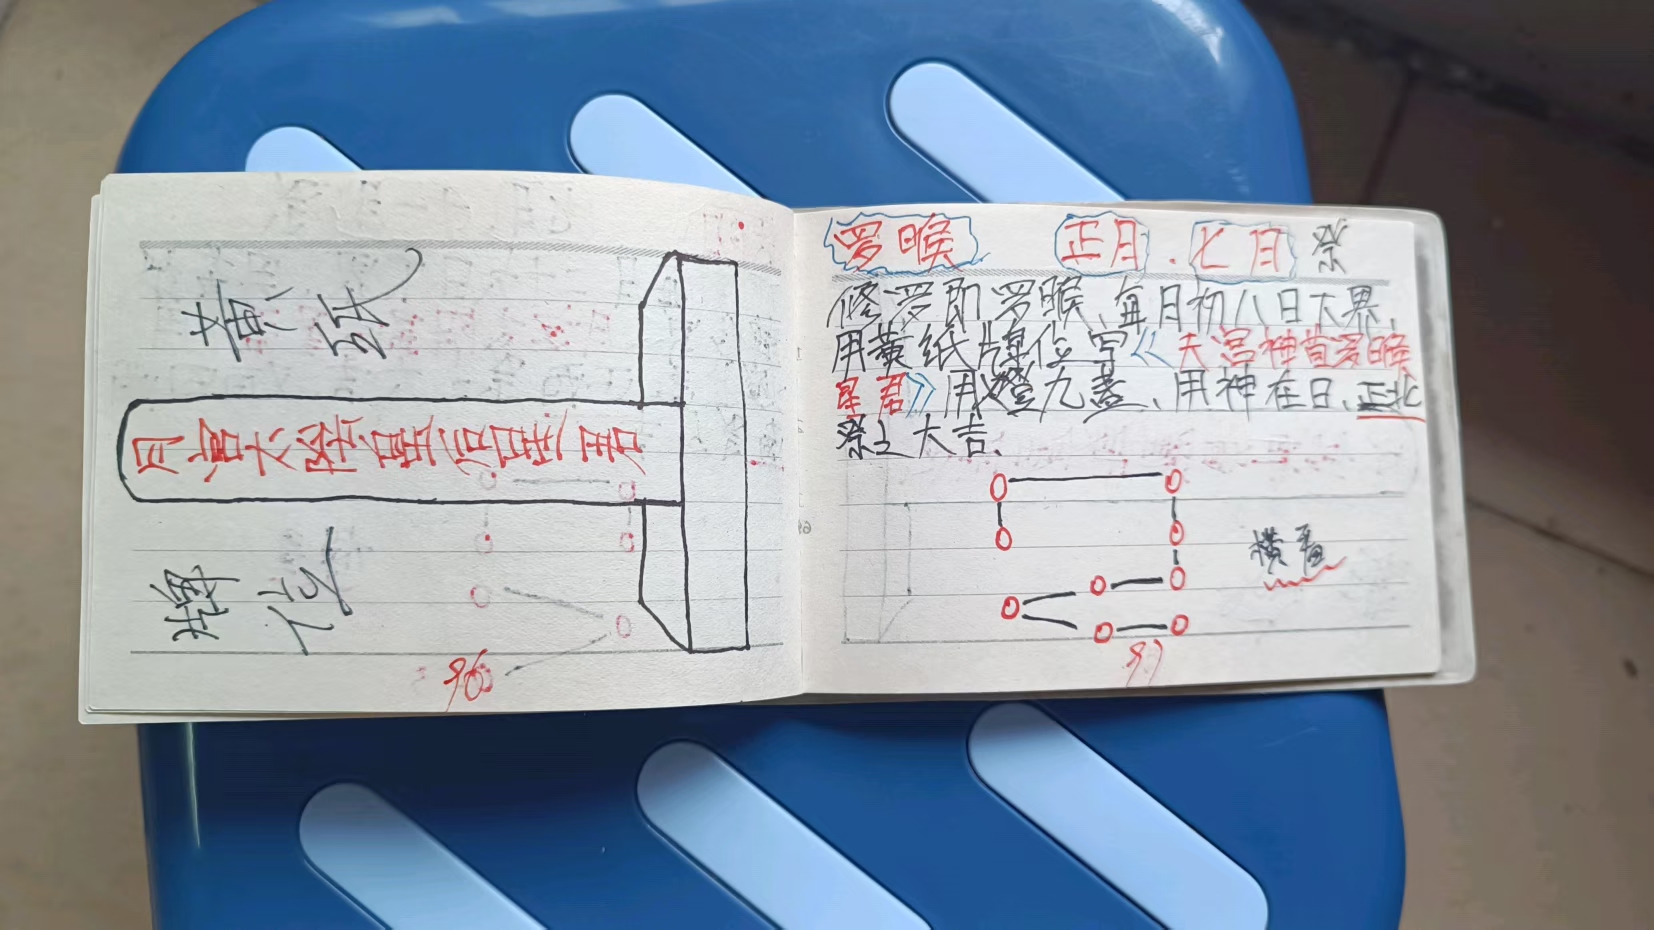 黄纸
月宫大
牌位
96
罗睺 正月.七月祭
修罗即罗睺、每月初八日下界、
用黄纸牌位写《天宫神首罗睺
星君》用燈九盏、用神在日、正北
祭之大吉、
横看
97